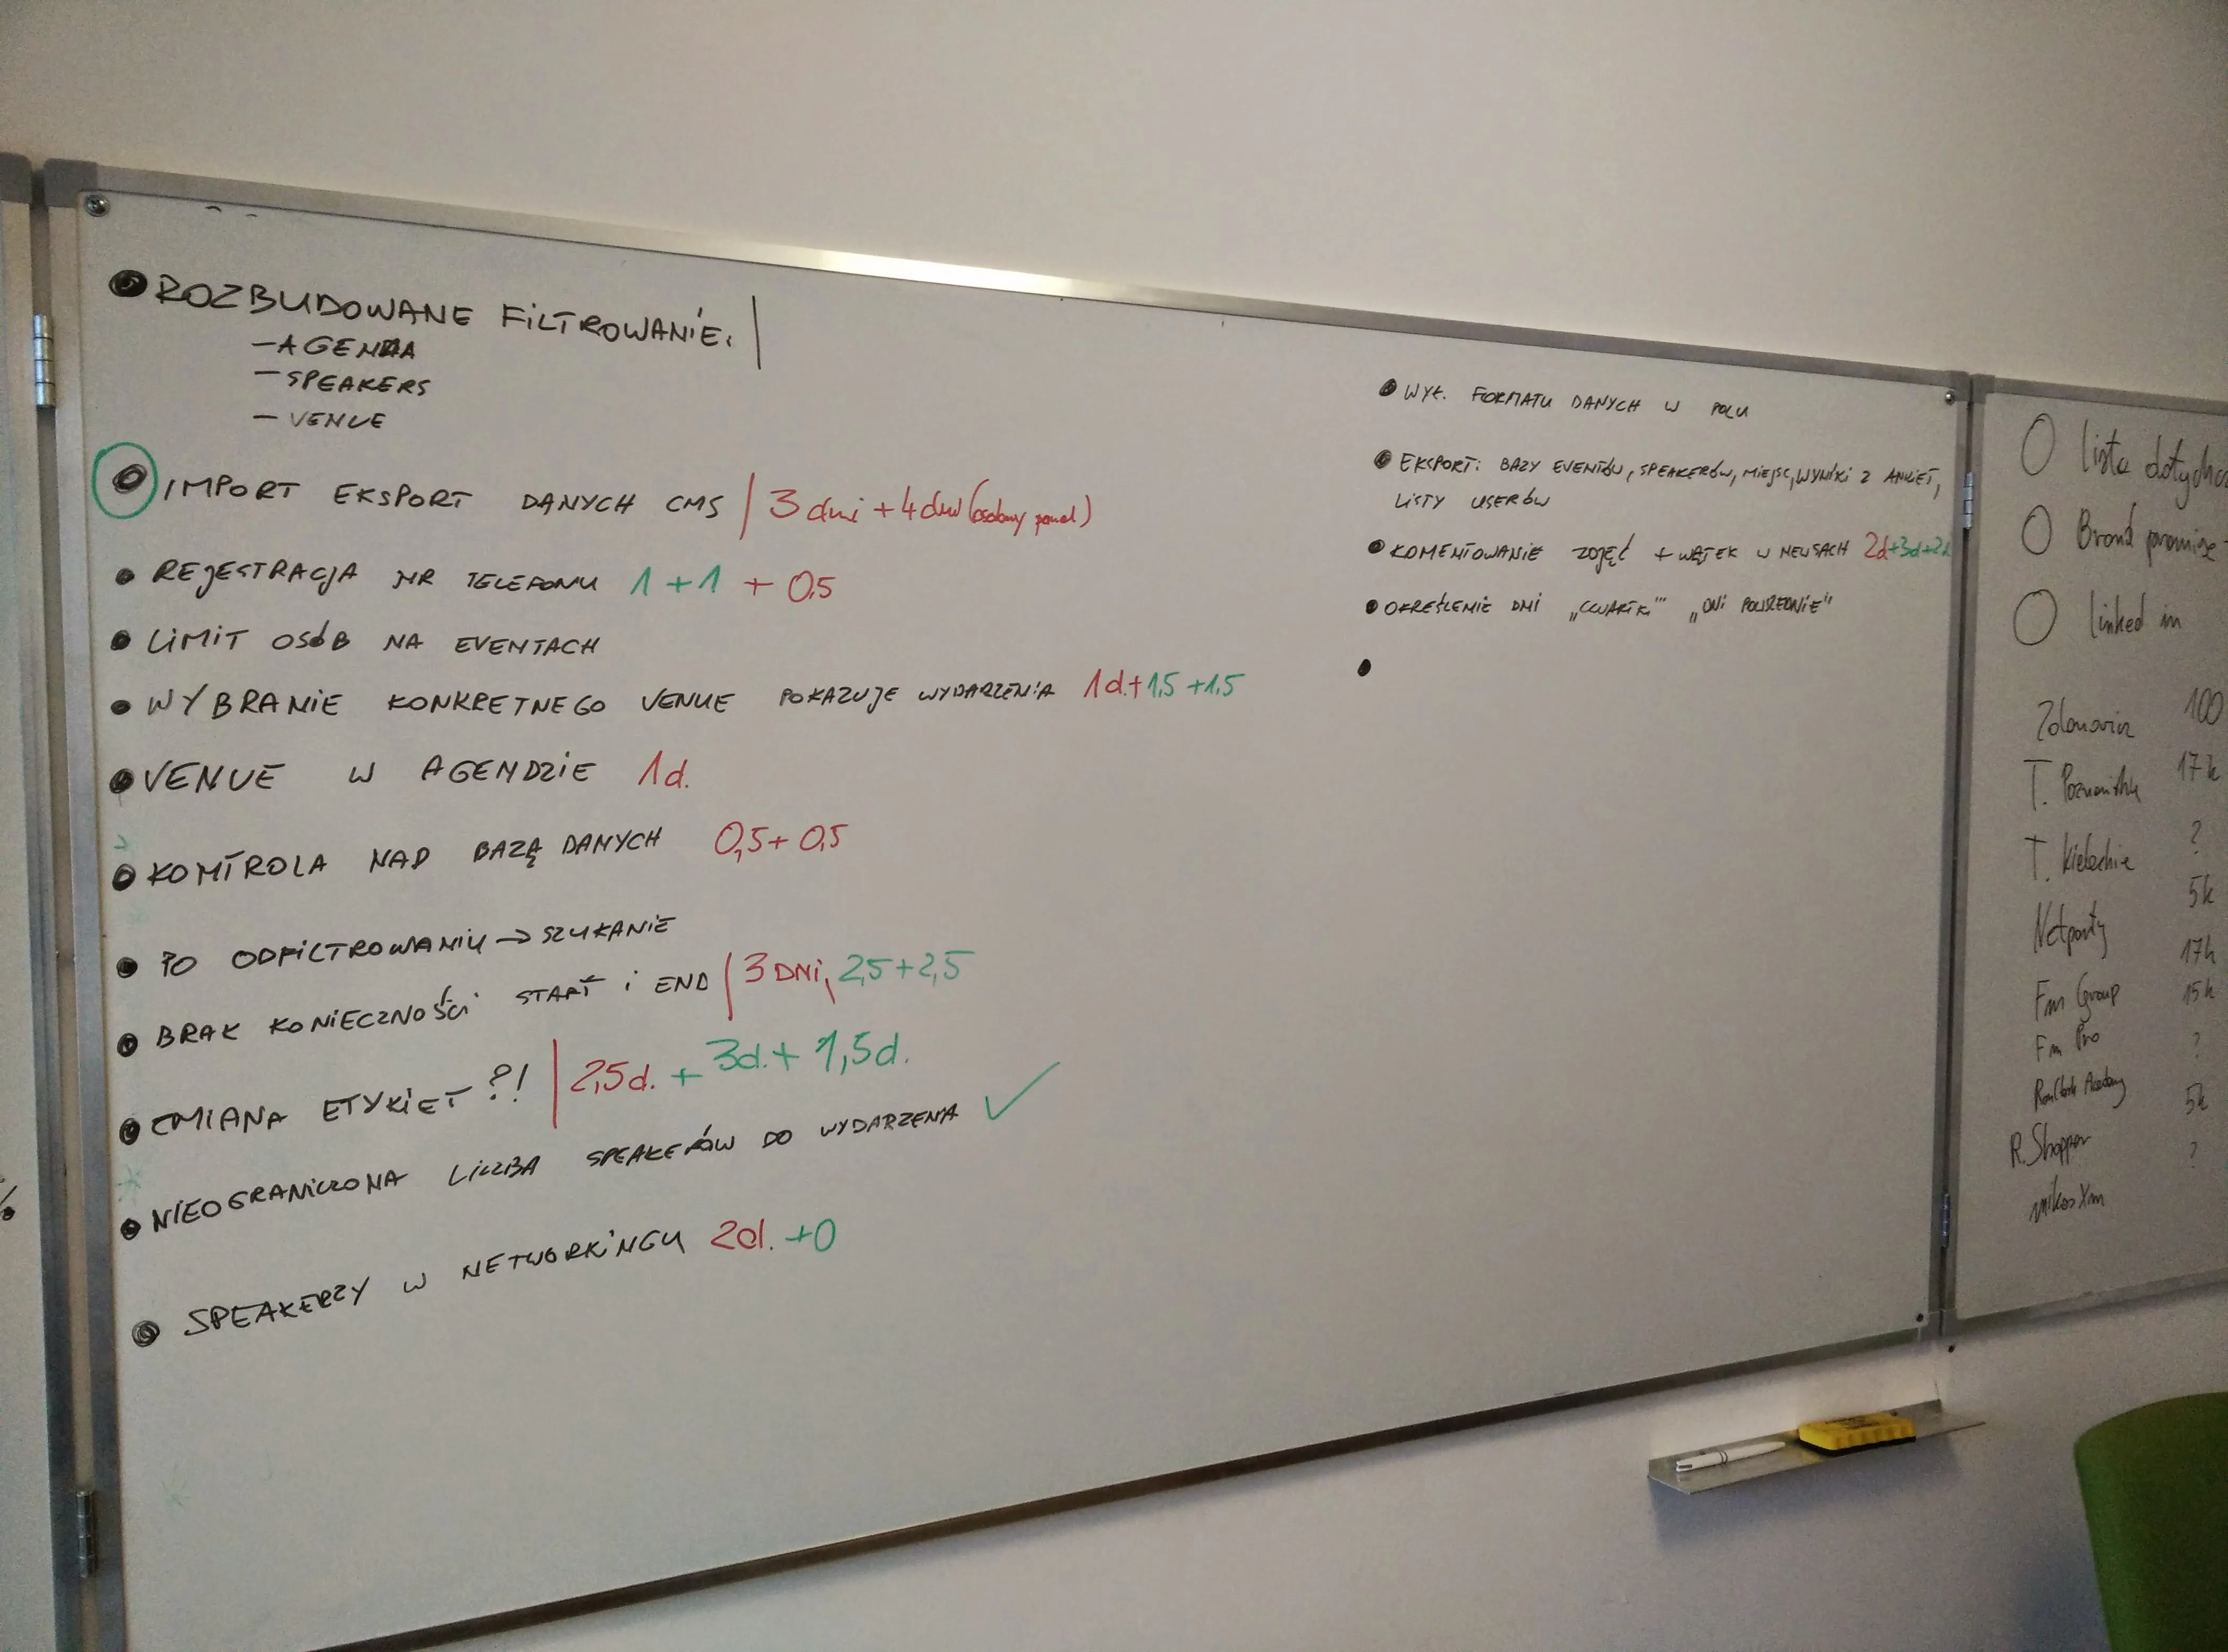 ROZBUDOWANE FILTROWANIE: |
- AGENDA
- SPEAKERS
- VENUE
IMPORT EKSPORT DANYCH CMS | 3 dni + 4 dni (osobny panel)
REJESTRACJA NR TELEFONU 1 + 1 + 0,5
LIMIT OSÓB NA EVENTACH
WYBRANIE KONKRETNEGO VENUE POKAZUJE WYDARZENIA 1d. + 1,5 + 1,5
VENUE W AGENDZIE 1d.
KONTROLA NAD BAZĄ DANYCH 0,5 + 0,5
PO ODFILTROWANIU → SZUKANIE
BRAK KONIECZNOŚCI START i END | 3 DNI, 2,5 + 2,5
ZMIANA ETYKIET ?! | 2,5d. + 3d. + 1,5d.
NIEOGRANICZONA LICZBA SPEAKERÓW DO WYDARZENIA ✓
SPEAKERZY W NETWORKINGU 2d. + 0
WYŁ. FORMATU DANYCH W POLU
EKSPORT: BAZY EVENTÓW, SPEAKERÓW, MIEJSC, WYNIKI Z ANKIET,
LISTY USERÓW
KOMENTOWANIE ZDJĘĆ + WĄTEK W NEWSACH 2d + 3d + 2d
OKREŚLENIE DNI „CZWARTK" „DNI POWSZEDNIE"
lista dotychcz
Brand promise
linked in
100
T. 17k
T. Kieleckie ?
Netparty 5k
Fm Group 17k
Fm Pro 15k
Academy ?
R. Shopper 5k
?